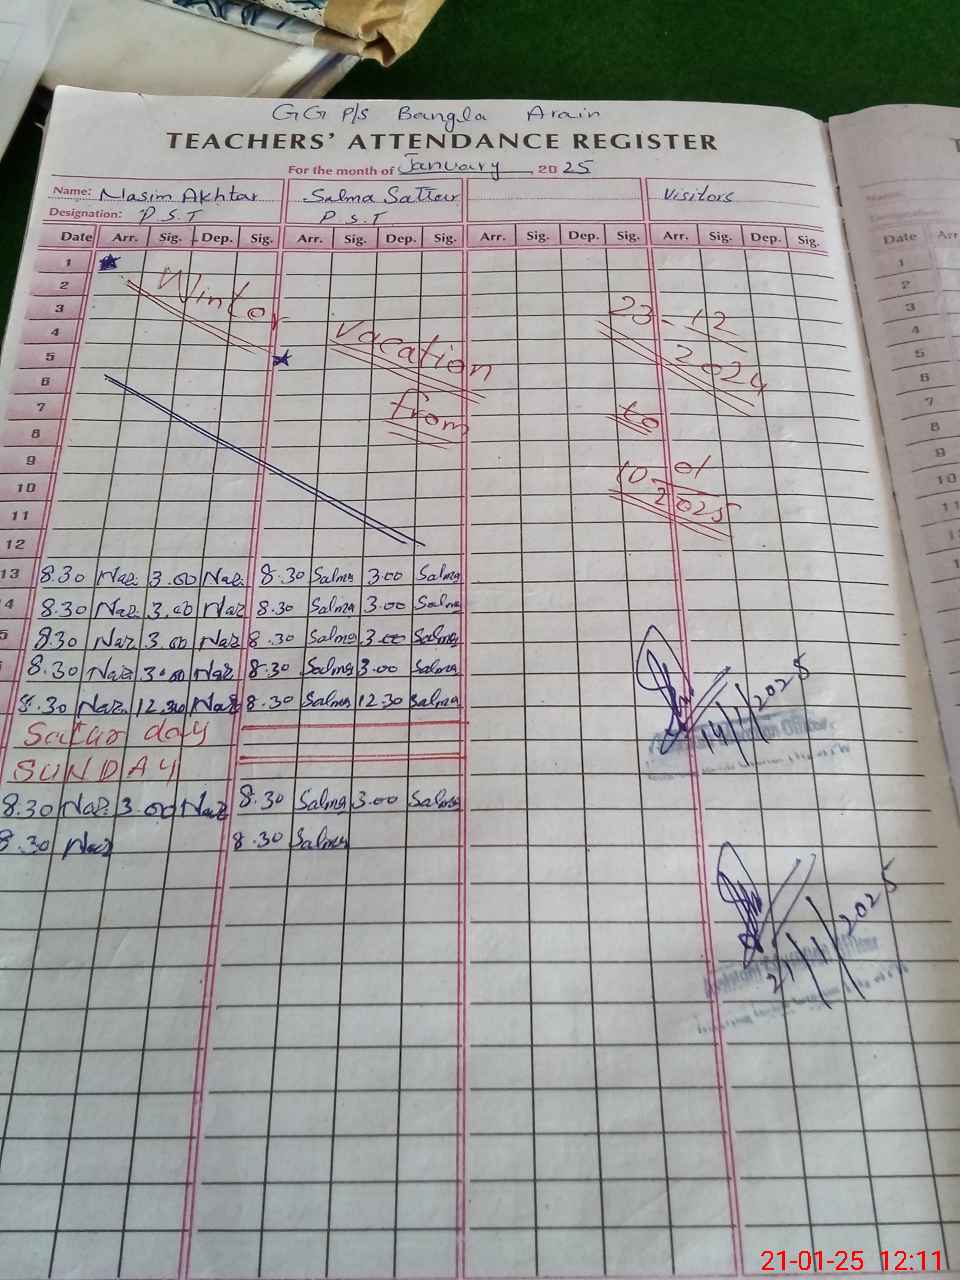 GG P/S Bangla Arain
TEACHERS' ATTENDANCE REGISTER
For the month of January, 2025
Name: Nasim Akhtar Salma Sattar Visitors
Designation: P.S.T P.S.T
Date Arr. Sig. Dep. Sig. Arr. Sig. Dep. Sig. Arr. Sig. Dep. Sig. Arr. Sig. Dep. Sig.
1
2
3
4
5
6
7
8
9
10
11
12
Winter
Vacation
from
23-12
2024
to
10-01
2025
13 8.30 Naz 3.00 Naz 8.30 Salma 3.00 Salma
4 8.30 Naz 3.00 Naz 8.30 Salma 3.00 Salma
5 8.30 Naz 3.00 Naz 8.30 Salma 3.00 Salma
8.30 Naz 3.00 Naz 8.30 Salma 3.00 Salma
8.30 Naz 12.30 Naz 8.30 Salma 12.30 Salma
Satur day
SUNDAY
8.30 Naz 3.00 Naz 8.30 Salma 3.00 Salma
8.30 Naz 8.30 Salma
14/1/2025
21/1/2025
Date Arr
1
2
3
4
5
6
7
8
9
10
11
21-01-25 12:11